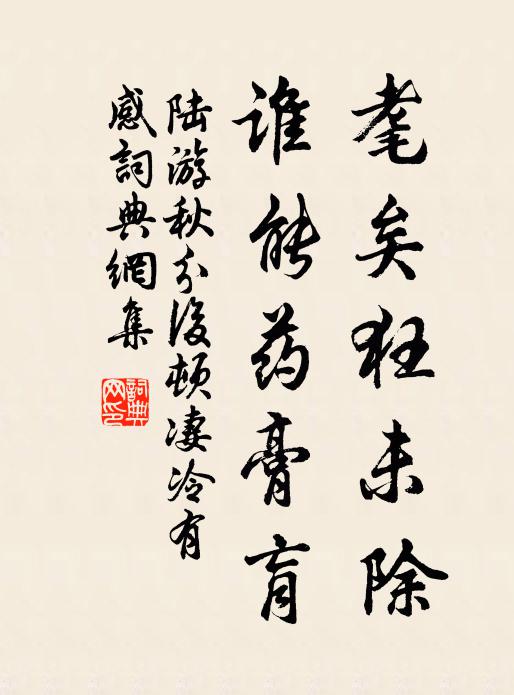 耄矣狂未除
谁能药膏肓
陆游秋分後顿凄冷有
感詞典網集
詞典网印